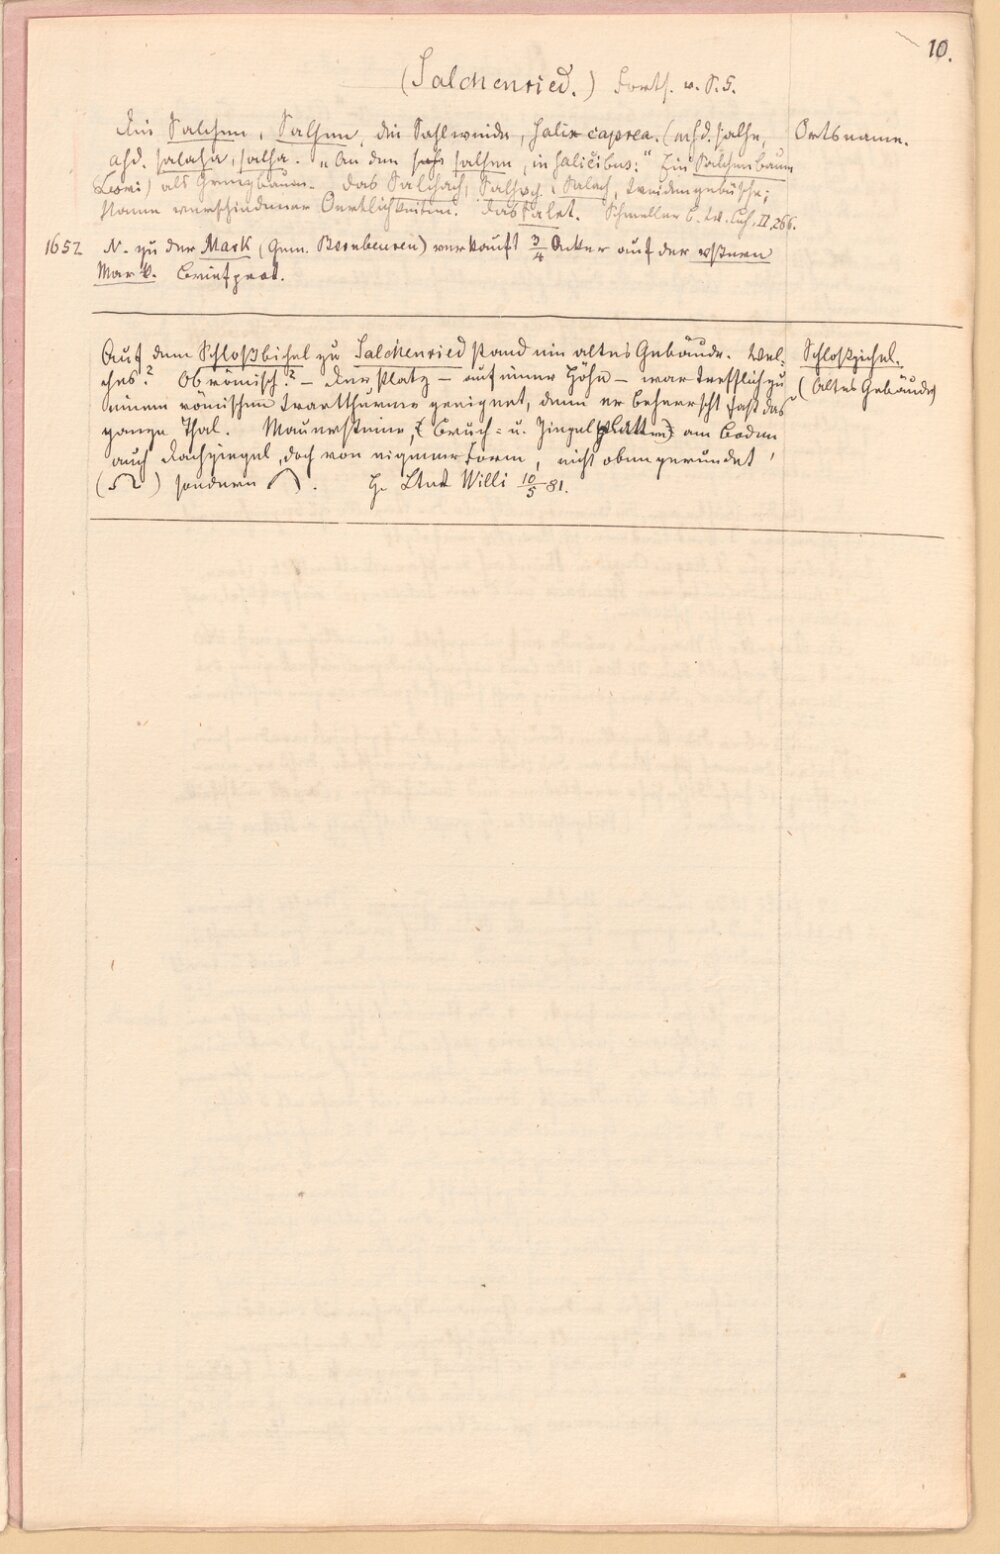 10.
(Salchenried.) Forts. v. S. 5.
Die Salchen, Salhen, die Sahlweide, Salix caprea. (mhd. salhe, Ortsname.
ahd. salaha, salha. „An den salhen, in salicibus." Ein Salchenbaum
(Lori) als Grenzbaum. Das Salchach, Salhach, Salach, Weidengebüsche;
Name verschiedener Oertlichkeiten. Das Salet. Schmeller b. W. II, 266.
1652 N. zu der Mark (Gem. Bernbeuren) verkauft 3/4 Acker auf der
Mark. Briefprot.
Auf dem Schloßbichel zu Salchenried stand ein altes Gebäude. Wel- Schloßbichel.
ches? Ob römisch? – Der Platz – auf einer Höhe – war trefflich zu (Altes Gebäude)
einem römischen Wartthurme geeignet, denn er beherrscht fast das
ganze Thal. Mauersteine, (Bruch- u. Ziegelplatten) am Boden
auch Dachziegel, doch von eigener Form, nicht oben gerundet,
( ) sondern . H. Ltnt Willi 10/5 81.